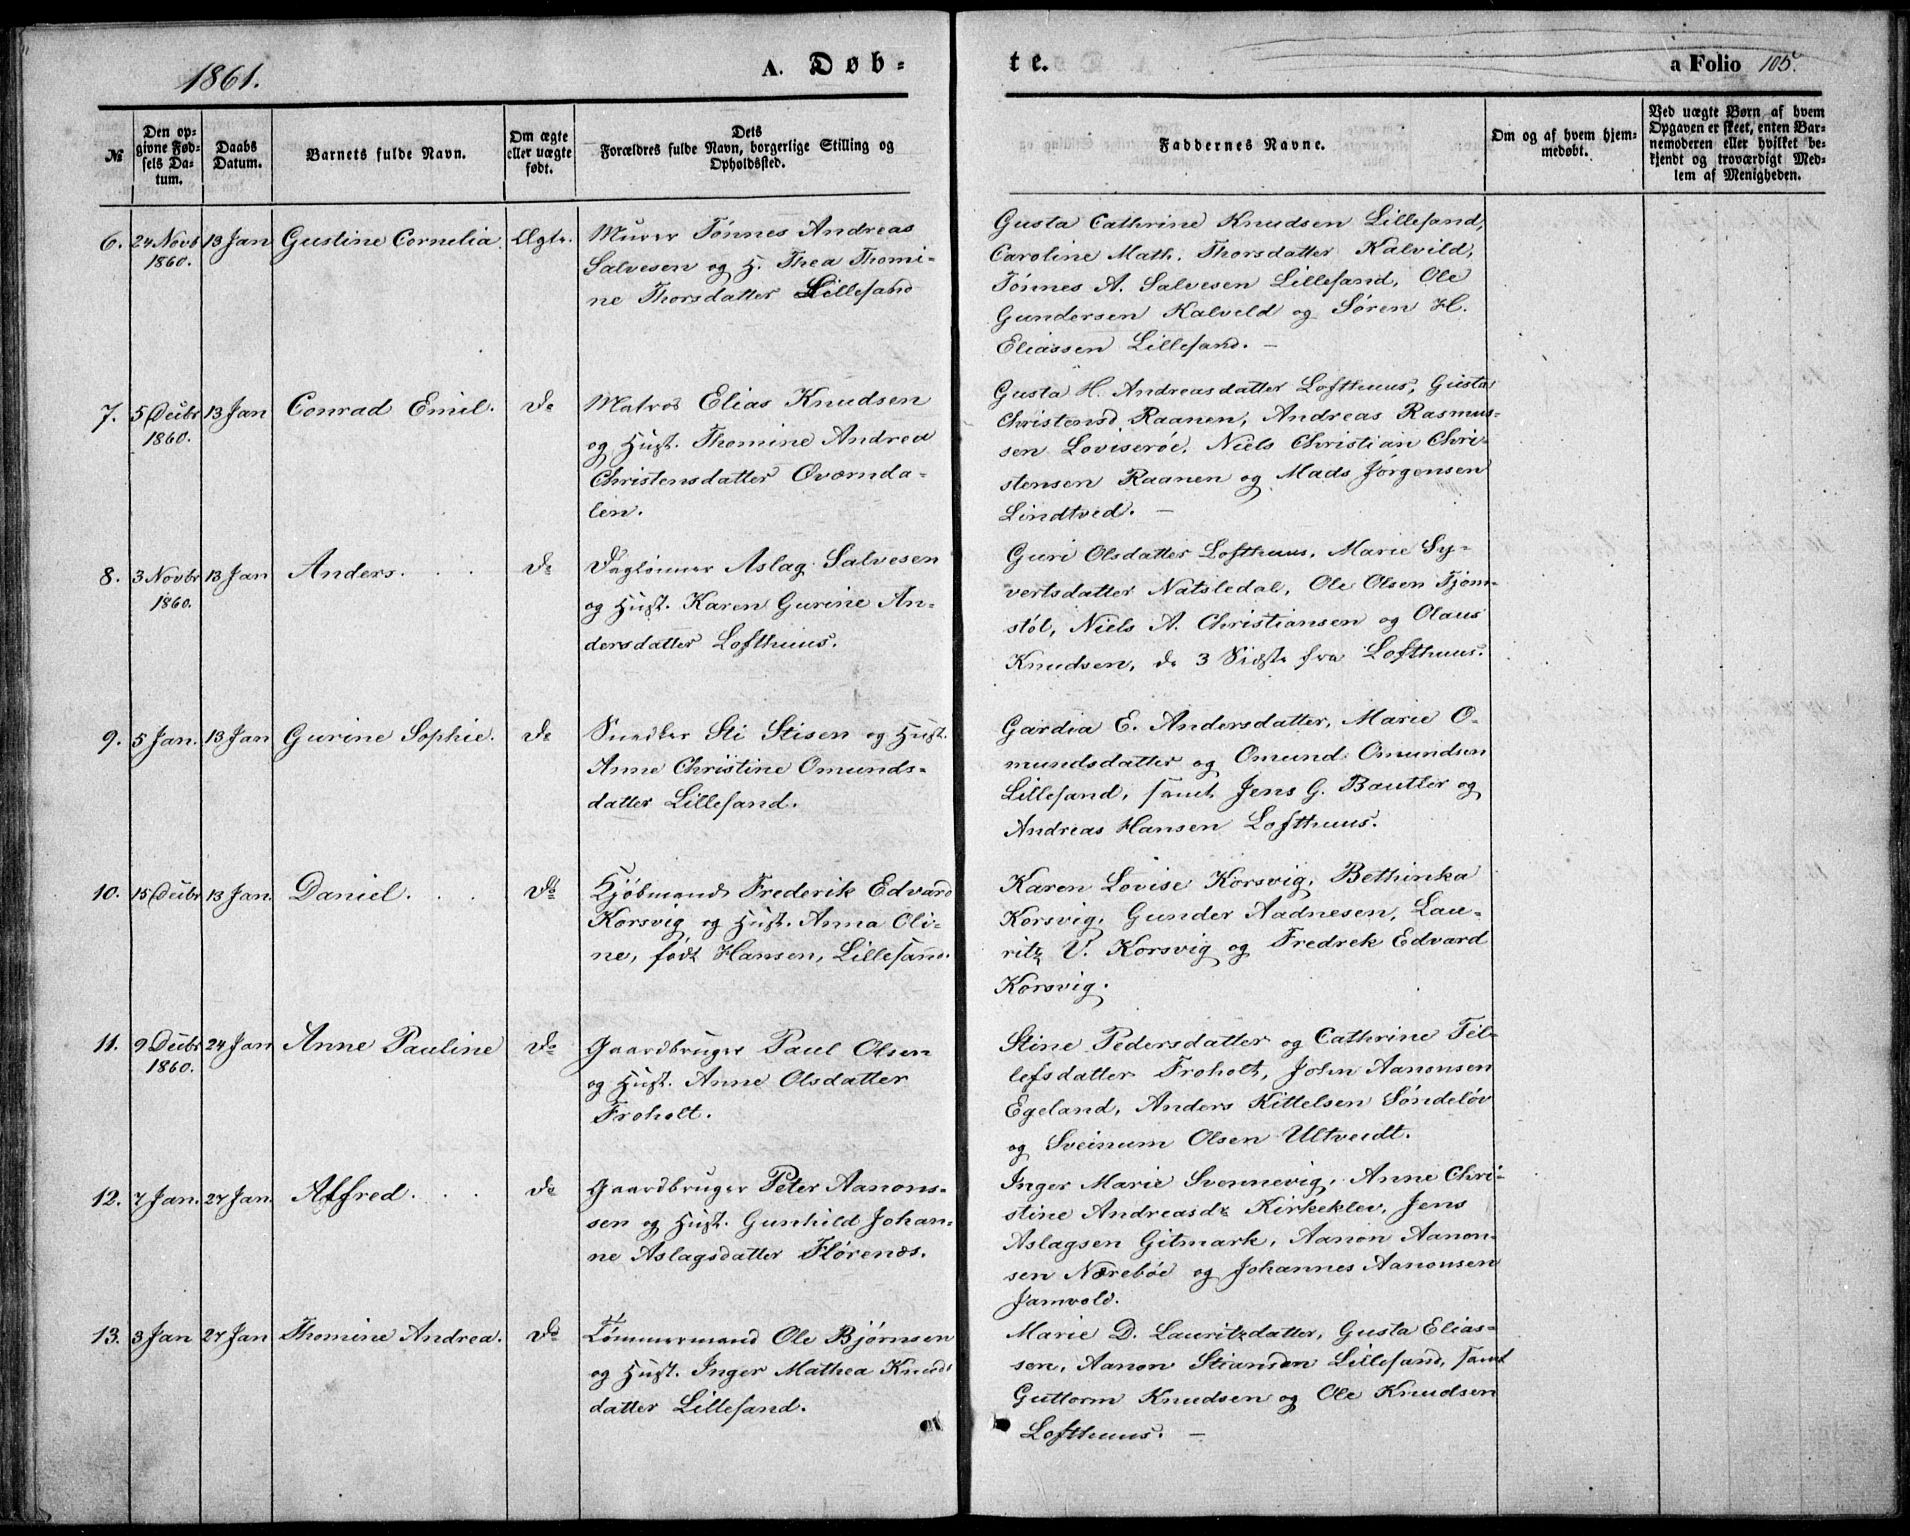 1861.
A. Døb-
te.
a Folio 105.
№
Den op-
givne Fød-
sels Da-
tum.
Daabs
Datum.
Barnets fulde Navn.
Om ægte
eller uægte
født.
Dets
Forældres fulde Navn, borgerlige Stilling og
Opholdssted.
Faddernes Navne.
Om og af hvem hjem-
medøbt.
Ved uægte Børn af hvem
Opgaven er skeet, enten Bar-
nemoderen eller hvilket be-
kjendt og troværdigt Med-
lem af Menigheden.
6. 24 Novb 13 Jan Gustine Cornelia. Ægte. Murer Tönnes Andreas
1860. Salvesen og H. Thea Thomi-
ne Thorsdatter Lillesand
Gusta Cathrine Knudsen Lillesand,
Caroline Math. Thorsdatter Kalvild,
Tönnes A. Salvesen Lillesand, Ole
Gundersen Kalveld og Søren H.
Eliassen Lillesand. —
7. 5 Decbr 13 Jan Conrad Emil. do Matros Elias Knudsen
1860. og Hust. Thomine Andrea
Christensdatter Qværnda-
len.
Gusta H. Andreasdatter Lofthuus, Gusta
Christensd. Raanen, Andreas Rasmus-
sen Loviseröe, Niels Christian Chri-
stensen Raanen og Mads Jörgensen
Lindtved. —
8. 3 Novbr 13 Jan Anders. do Daglönner Aslag Salvesen
1860. og Hust. Karen Gurine An-
dersdatter Lofthuus.
Guri Olsdatter Lofthuus, Marie Sy-
vertsdatter Natsledal, Ole Olsen Tjöm-
stöl, Niels A. Christiansen og Olaus
Knudsen, de 3 Sidste fra Lofthuus.
9. 5 Jan. 13 Jan Gurine Sophie. do Snedker Sti Stisen og Hust.
Anne Christine Omunds-
datter Lillesand.
Gardia E. Andersdatter, Marie O-
mundsdatter og Omund Omundsen
Lillesand, samt Jens G. Bautler og
Andreas Hansen Lofthuus.
10. 15 Decbr 13 Jan. Daniel. do Kjöbmand Frederik Edvard
Korsvig og Hust. Anna Oli-
ne, födt Hansen, Lillesand.
Karen Lovise Korsvig, Bethinka
Korsvig, Gunder Aadnesen, Lau-
ritz V. Korsvig og Fredrek Edvard
Korsvig.
11. 9 Decbr 24 Jan Anne Pauline do Gaardbruger Paul Olsen
1860. og Hust. Anne Olsdatter
Froholt.
Stine Pedersdatter og Cathrine Tel-
lefsdatter Froholt, John Aanonsen
Egeland, Anders Kittelsen Söndelöv
og Sveinum Olsen Ultveidt.
12. 7 Jan. 27 Jan. Alfred. do Gaardbruger Peter Aanons-
sen og Hust. Gunhild Johan-
ne Aslagsdatter Flörenæs.
Inger Marie Svennevig, Anne Chri-
stine Andreasdr Kirkeklev, Jens
Aslagsen Gitmark, Aanon Aanon-
sen Næreböe og Johannes Aanonsen
Jamvold.
13. 3 Jan 27 Jan Thomine Andrea. do Tömmermand Ole Bjørnsen
og Hust. Inger Mathea Knuds
datter Lillesand.
Marie D. Lauritzdatter, Gusta Elias-
sen, Aanon Stiansen Lillesand, samt
Guttorm Knudsen og Ole Knudsen
Lofthuus. —